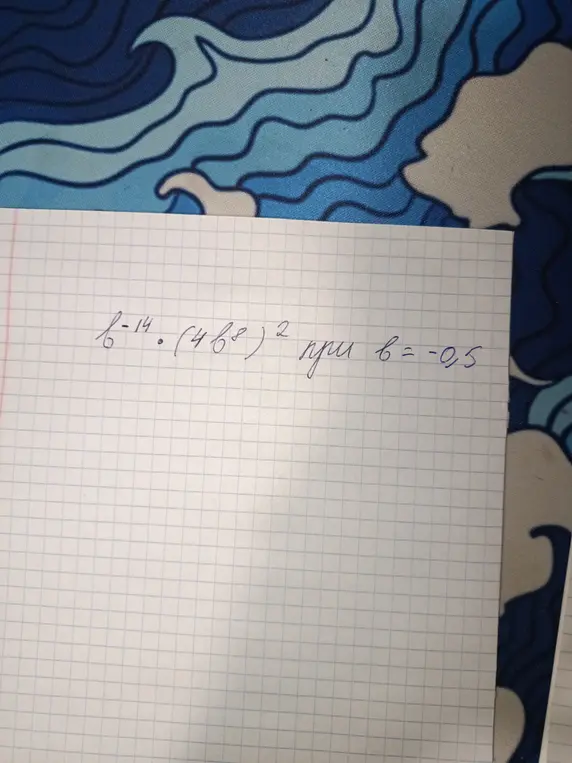 b⁻¹⁴ · (4b⁸)² при b = -0,5